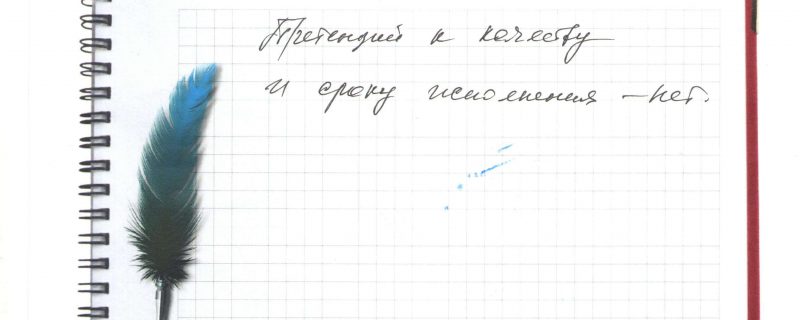 Претензий к качеству
и сроку исполнения – нет.